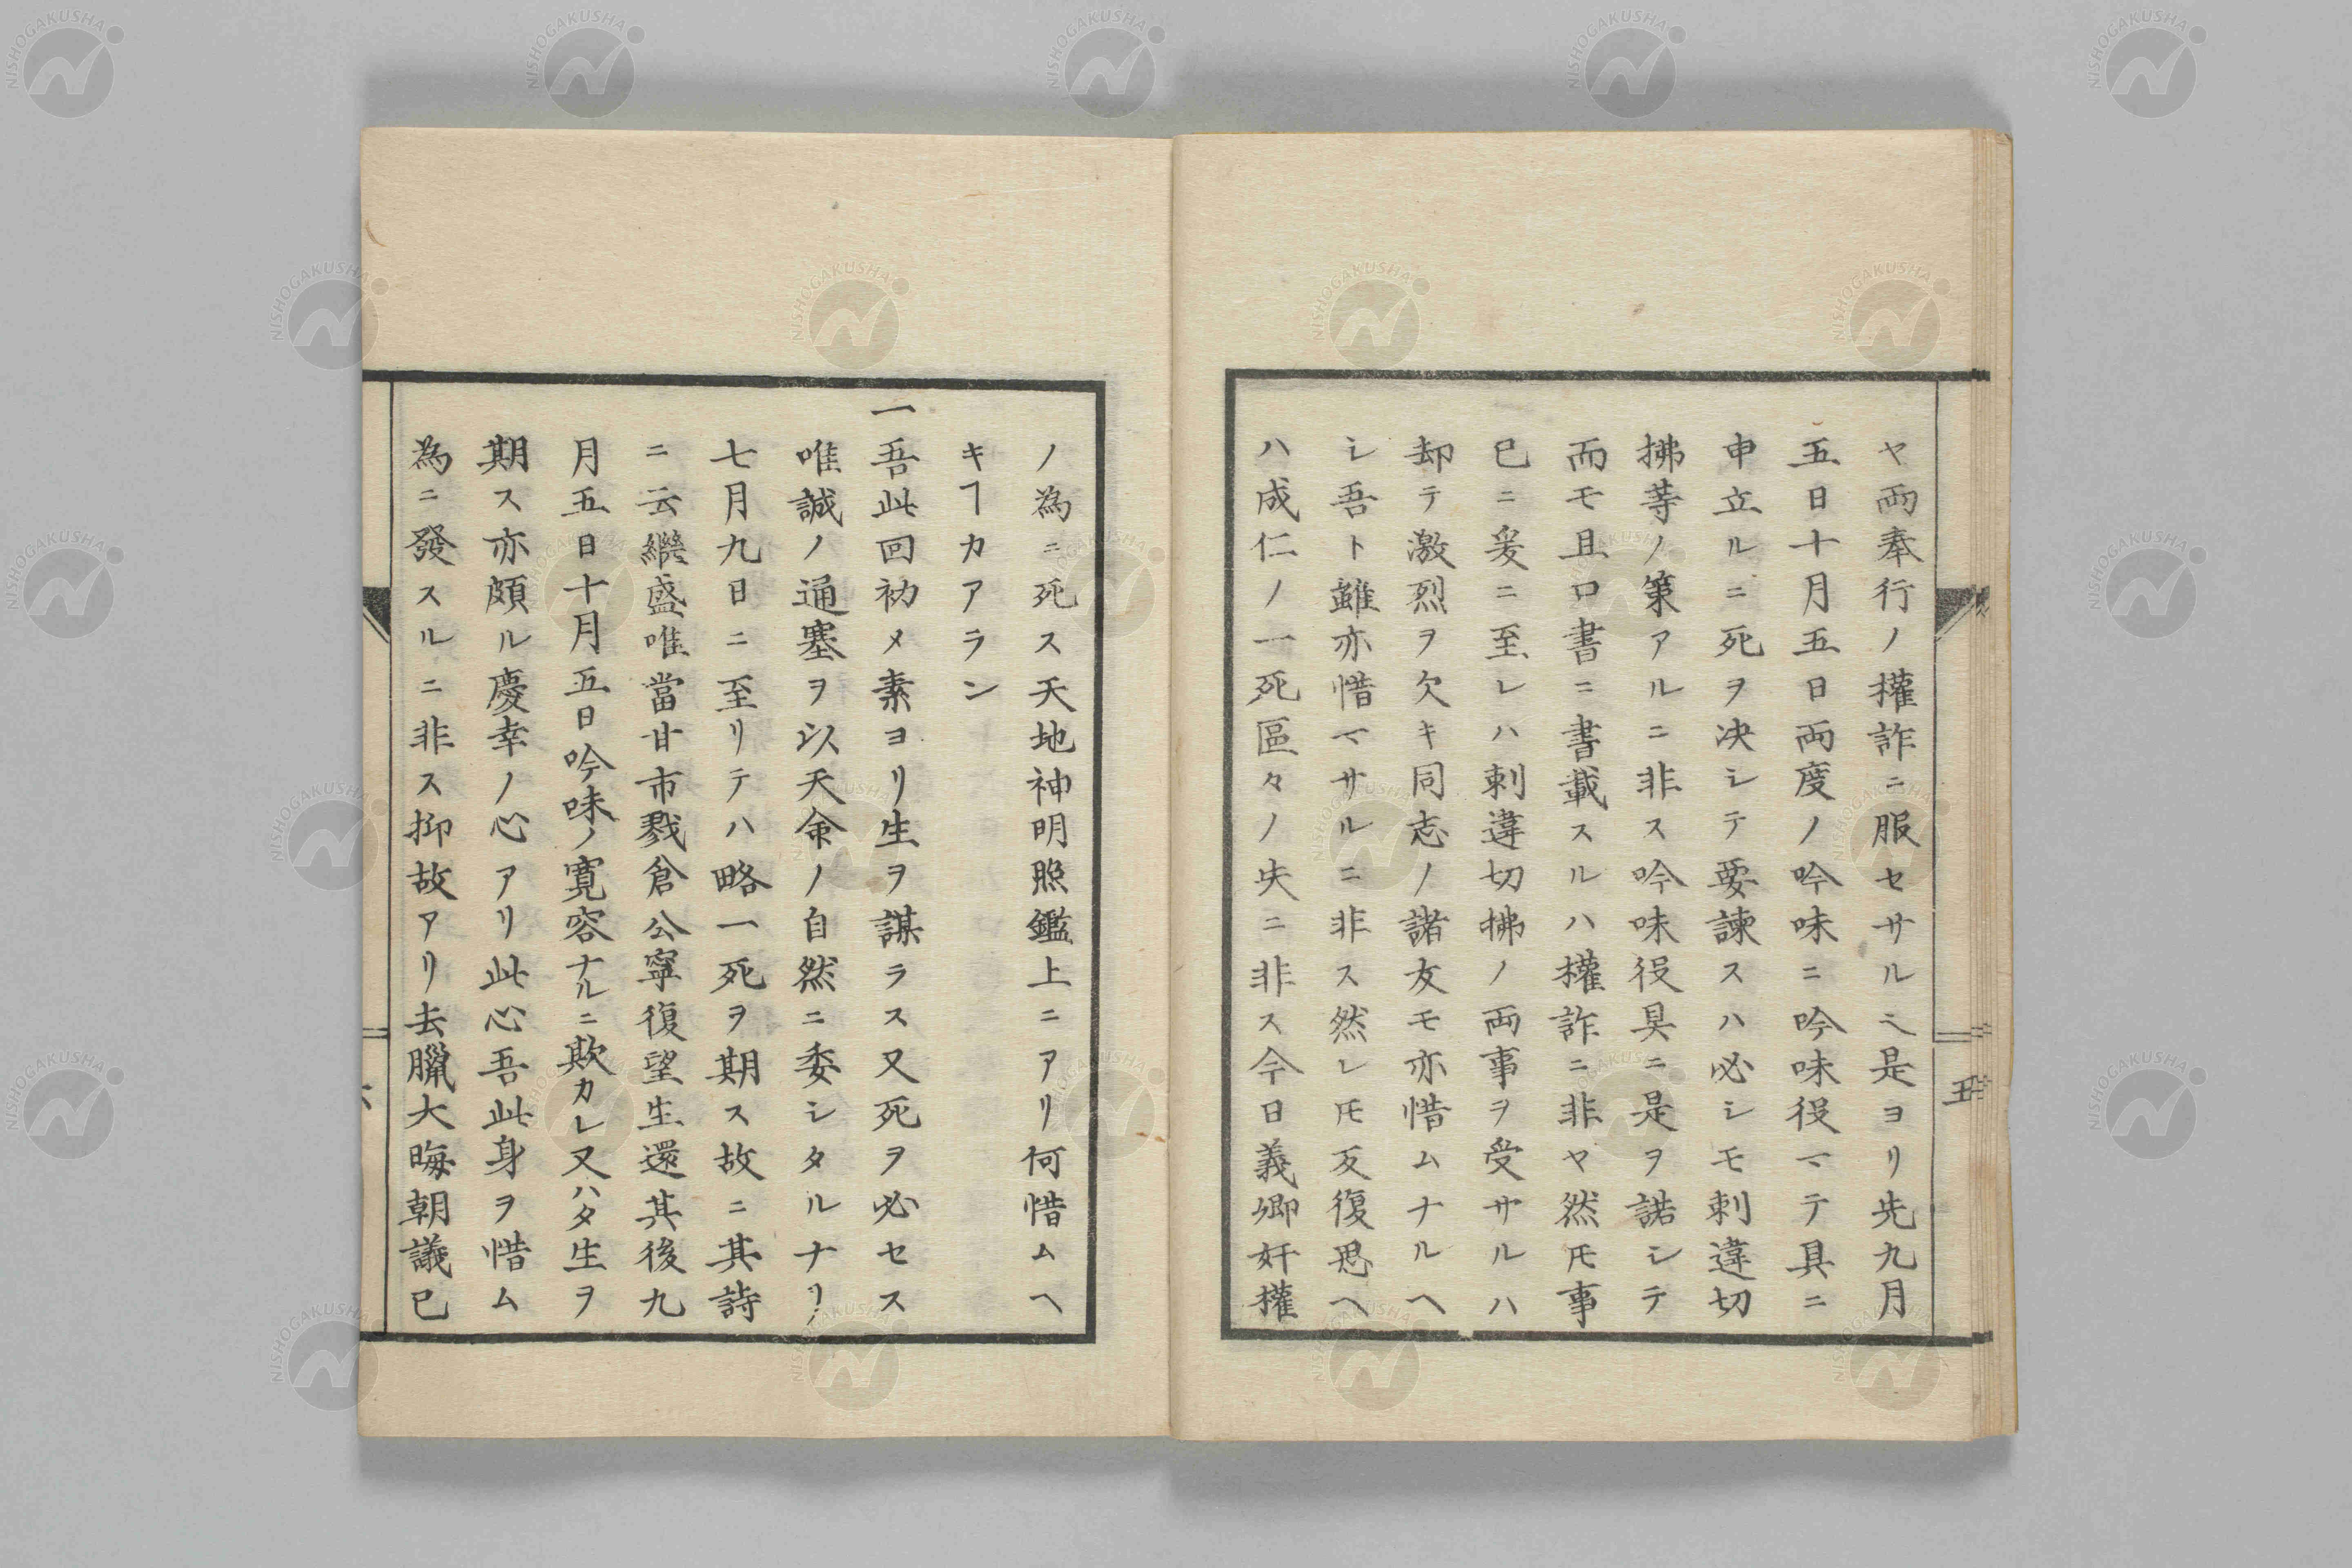 ヤ両奉行ノ權詐ニ服セサル亡是ヨリ先九月
五日十月五日両度ノ吟味ニ吟味役マテ具ニ
申立ルニ死ヲ决シテ要諫スハ必シモ刺違切
拂等ノ策アルニ非ス吟味役具ニ是ヲ諾シテ
而モ且口書ニ書載スルハ權詐ニ非ヤ然𪜈事
已ニ爰ニ至レハ刺違切拂ノ両事ヲ受サルハ
却テ激烈ヲ欠キ同志ノ諸友モ亦惜ムナルヘ
シ吾ト雖亦惜マサルニ非ス然レ𪜈反復思ヘ
ハ成仁ノ一死區々ノ失ニ非ス今日義卿奸權
五
ノ為ニ死ス天地神明照鑑上ニアリ何惜ムヘ
キヿカアラン
一吾此回初メ素ヨリ生ヲ謀ラス又死ヲ必セス
唯誠ノ通塞ヲ以天命ノ自然ニ委シタルナリ
七月九日ニ至リテハ略一死ヲ期ス故ニ其詩
ニ云繼盛唯當甘市戮倉公寧復望生還其後九
月五日十月五日吟味ノ寛容ナルニ欺カレ又ハタ生ヲ
期ス亦頗ル慶幸ノ心アリ此心吾此身ヲ惜ム
為ニ發スルニ非ス抑故アリ去臘大晦朝議已
NISHOGAKUSHA